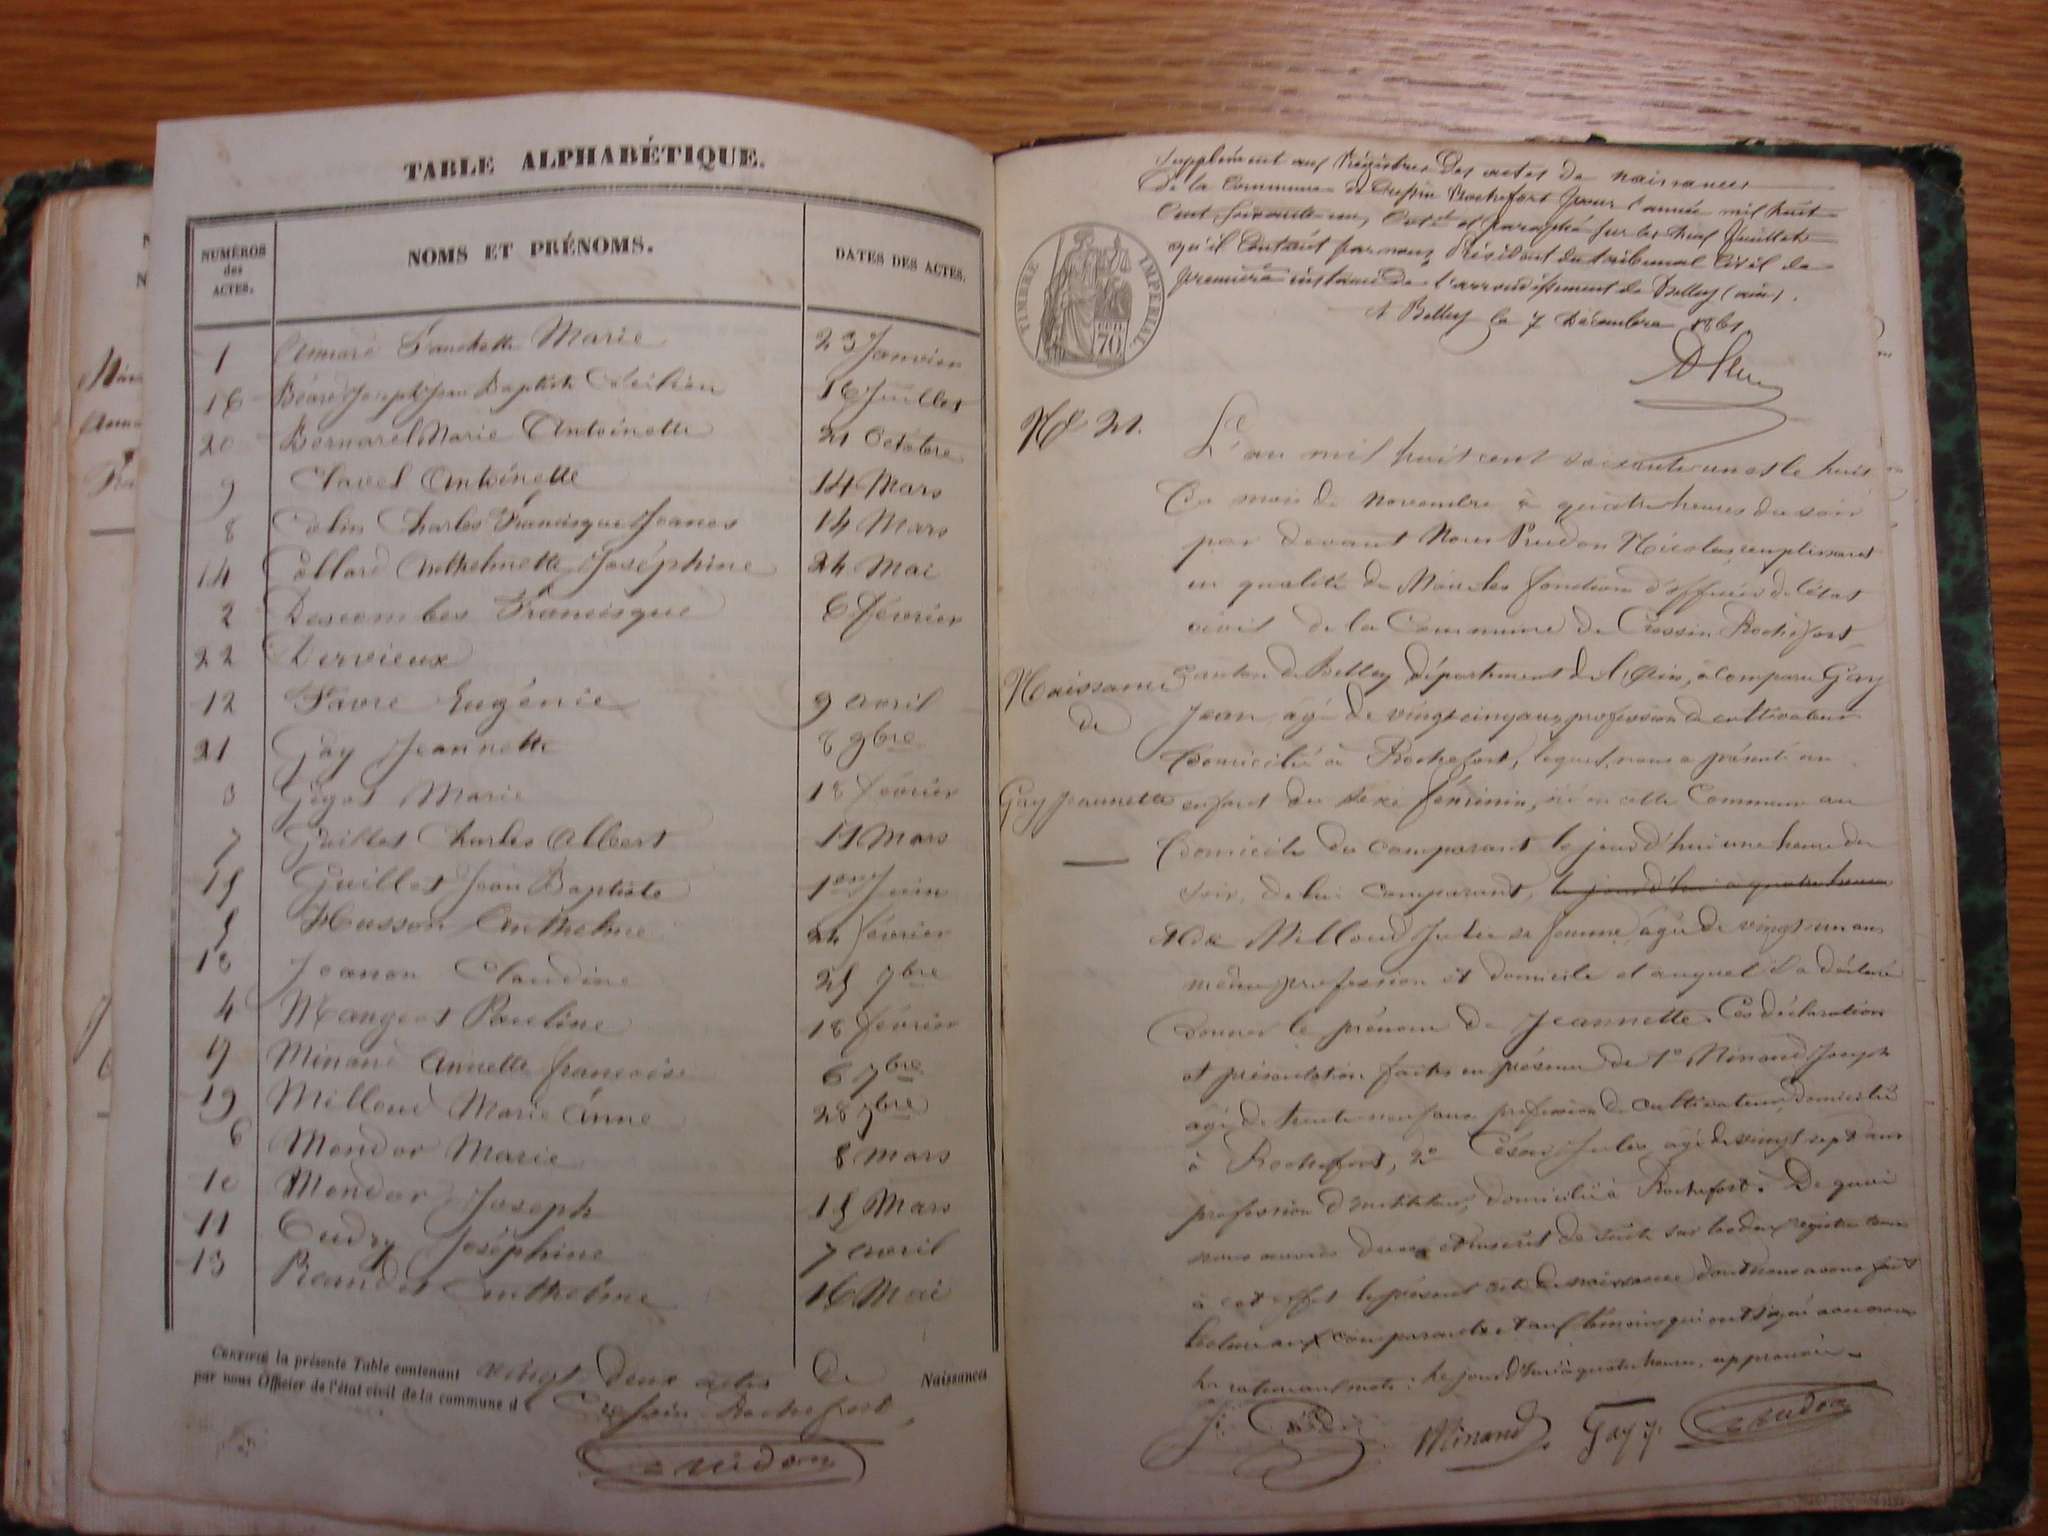 TABLE ALPHABÉTIQUE.
NUMÉROS des ACTES. NOMS ET PRÉNOMS. DATES DES ACTES.
1 Fanchette Marie 23 Janvier
16 Joseph Jean Baptiste 16 Juillet
20 Bernard Marie Antoinette 21 Octobre
9 Clavel Antoinette 14 Mars
8 Colin Charles Francisque 14 Mars
14 Collard Anthelmette Joséphine 24 Mai
2 Descombes Francisque 6 février
22 Dervieux
12 Favre Eugénie 9 avril
21 Gay Jeannette 8 9bre
3 Gigot Marie 18 février
7 Guillet Charles Albert 11 Mars
15 Guillet Jean Baptiste 1er Juin
5 Husson Anthelme 24 février
18 Claudine 25 7bre
4 Mangeot Pauline 18 février
17 Minand Annette françoise 6 7bre
19 Milloud Marie Anne 28 9bre
6 Mondor Marie 8 mars
10 Mondor Joseph 15 Mars
11 Cudry Joséphine 7 avril
13 Anthelme 16 Mai
CERTIFIÉ la présente Table contenant vingt deux actes de Naissances
par nous Officier de l'état civil de la commune d Cressin Rochefort
Prudon
Supplément aux Régistres des actes de naissances
de la Commune de Cressin Rochefort pour l'année mil huit
cent soixante un, Coté et paraphé sur les feuillets
qu'il contient par nous Président du tribunal Civil de
première instance de l'arrondissement de Belley (ain).
A Belley le 7 Décembre 1861.
TIMBRE IMPÉRIAL
70
No 21.
L'an mil huit cent soixante un et le huit
du mois de novembre à quatre heures du soir
par devant Nous Prudon Nicolas remplissant
en qualité de Maire les fonctions d'officier de l'état
civil de la Commune de Cressin Rochefort,
Naissance
de
Gay Jeannette
canton de Belley département de l'Ain, a comparu Gay
Jean, agé de vingt cinq ans, profession de cultivateur
domicilié à Rochefort, lequel nous a présenté un
enfant du sexe féminin, né en cette Commune au
domicile du comparant le jour d'hui une heure du
soir, de lui comparant, le jour d'hui à quatre heures
et de Milloud Julie sa femme, agée de vingt un ans
même profession et domicile et auquel il a déclaré
donner le prénom de Jeannette. Ces déclaration
et présentation faites en présence de 1o Minand Joseph
agé de trente neuf ans, profession de cultivateur, domicilié
à Rochefort, 2o César Jules, agé de vingt sept ans
profession d'instituteur, domicilié à Rochefort. De quoi
nous avons dressé et inscrit de suite sur les deux registres tenus
à cet effet le présent acte de naissance dont nous avons fait
lecture aux comparants et aux témoins qui ont signé avec nous
les mots: le jour d'hui à quatre heures, approuvée.
Minand. Gay J. Prudon